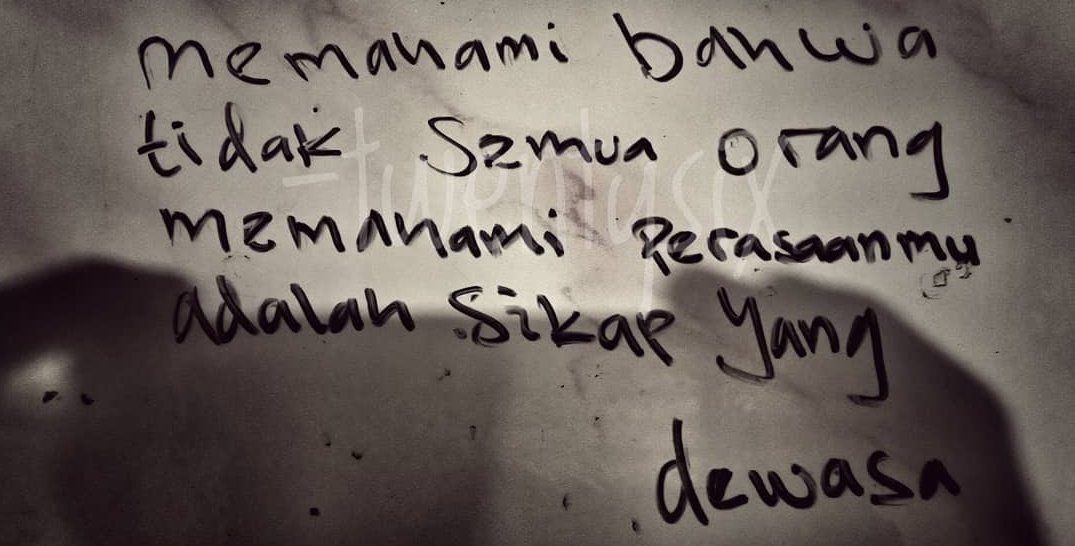 memahami bahwa
tidak semua orang
-twentysix
memahami perasaanmu
adalah sikap yang
dewasa